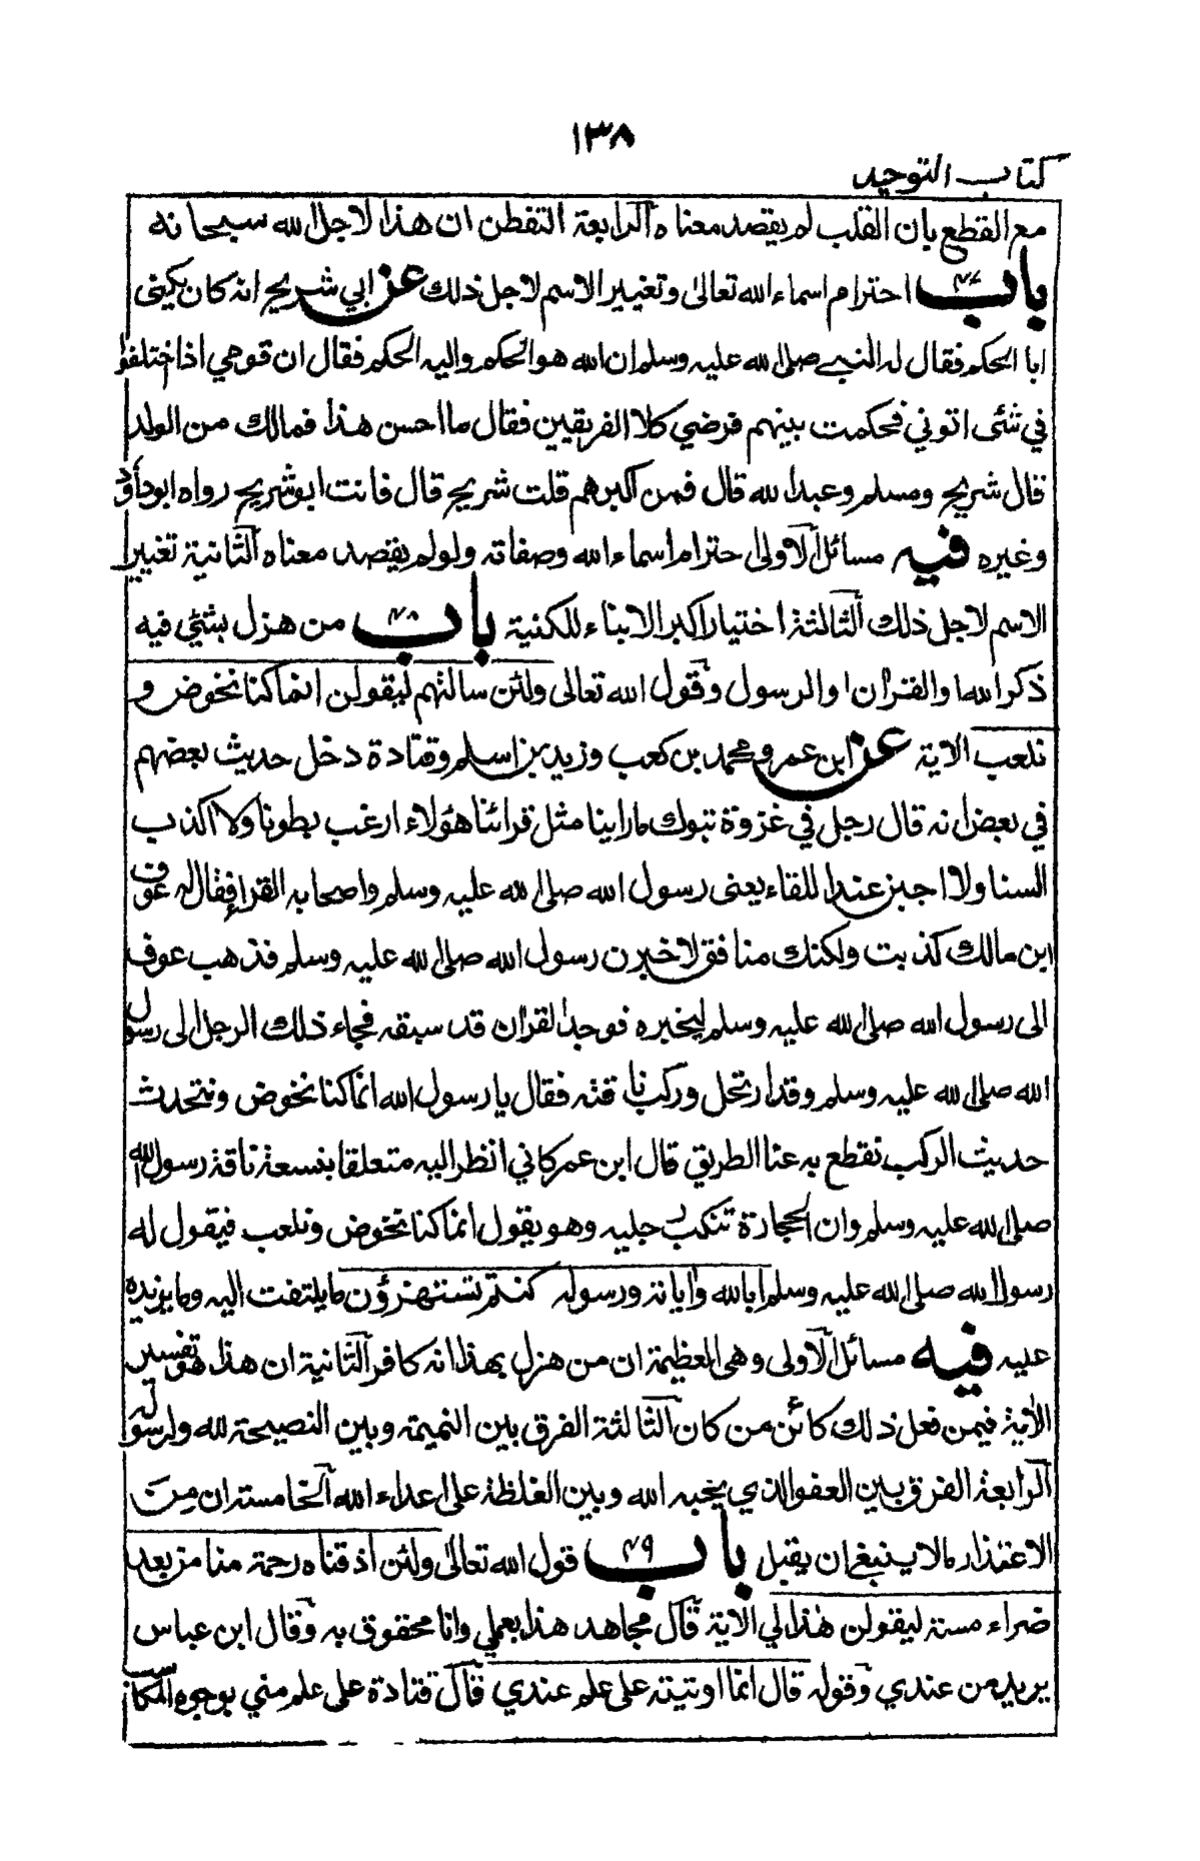 ١٣٨
كتاب التوحيد
مع القطع بان القلب لم يقصد معناه آلرابعة التفطن ان هذا لاجل الله سبحانه
باب ٤٧ احترام اسماء الله تعالى وتغيير الاسم لاجل ذلك عن ابي شريح انه كان يكنى
ابا الحكم فقال له النبي صلى الله عليه وسلم ان الله هو الحكم واليه الحكم فقال ان قومي اذا اختلفوا
في شئى اتوني فحكمت بينهم فرضي كلا الفريقين فقال ما احسن هذا فمالك من الولد
قال شريح ومسلم وعبد الله قال فمن اكبرهم قلت شريح قال فانت ابو شريح رواه ابو داؤد
وغيره فيه مسائل آلاولى احترام اسماء الله وصفاته ولو لم يقصد معناه آلثانية تغيير
الاسم لاجل ذلك آلثالثة اختيار اكبر الابناء للكنية باب ٤٨ من هزل بشئي فيه
ذكر الله او القران او الرسول وقول الله تعالى ولئن سالتهم ليقولن انما كنا نخوض و
نلعب الاية عن ابن عمر ومحمد بن كعب وزيد بن اسلم وقتادة دخل حديث بعضهم
في بعض انه قال رجل في غزوة تبوك ما راينا مثل قرائنا هؤلاء ارغب بطونا ولا اكذب
السنا ولا اجبن عند اللقاء يعنى رسول الله صلى الله عليه وسلم واصحابه القراء فقال له عوف
ابن مالك كذبت ولكنك منافق لاخبرن رسول الله صلى الله عليه وسلم فذهب عوف
الى رسول الله صلى الله عليه وسلم ليخبره فوجد القران قد سبقه فجاء ذلك الرجل الى رسول
الله صلى الله عليه وسلم وقد ارتحل وركب ناقته فقال يا رسول الله انما كنا نخوض ونتحدث
حديث الركب نقطع به عنا الطريق قال ابن عمر كاني انظر اليه متعلقا بنسعة ناقة رسول الله
صلى الله عليه وسلم وان الحجارة تنكب رجليه وهو يقول انما كنا نخوض ونلعب فيقول له
رسول الله صلى الله عليه وسلم ابالله واياته ورسوله كنتم تستهزؤن ما يلتفت اليه وما يزيده
عليه فيه مسائل آلاولى وهى العظيمة ان من هزل بهذا انه كافر آلثانية ان هذا هو تفسير
الاية فيمن فعل ذلك كائن من كان آلثالثة الفرق بين النميمة وبين النصيحة لله ولرسوله
آلرابعة الفرق بين العفو الذي يحبه الله وبين الغلظة على اعداء الله آلخامسة ان من
الاعتذار مالا ينبغى ان يقبل باب ٤٩ قول الله تعالى ولئن اذقناه رحمة منا من بعد
ضراء مسته ليقولن هذا لي الاية قال مجاهد هذا بعملي وانا محقوق به وقال ابن عباس
يريد من عندي وقوله قال انما اوتيته على علم عندي قال قتادة على علم مني بوجوه المكاسب